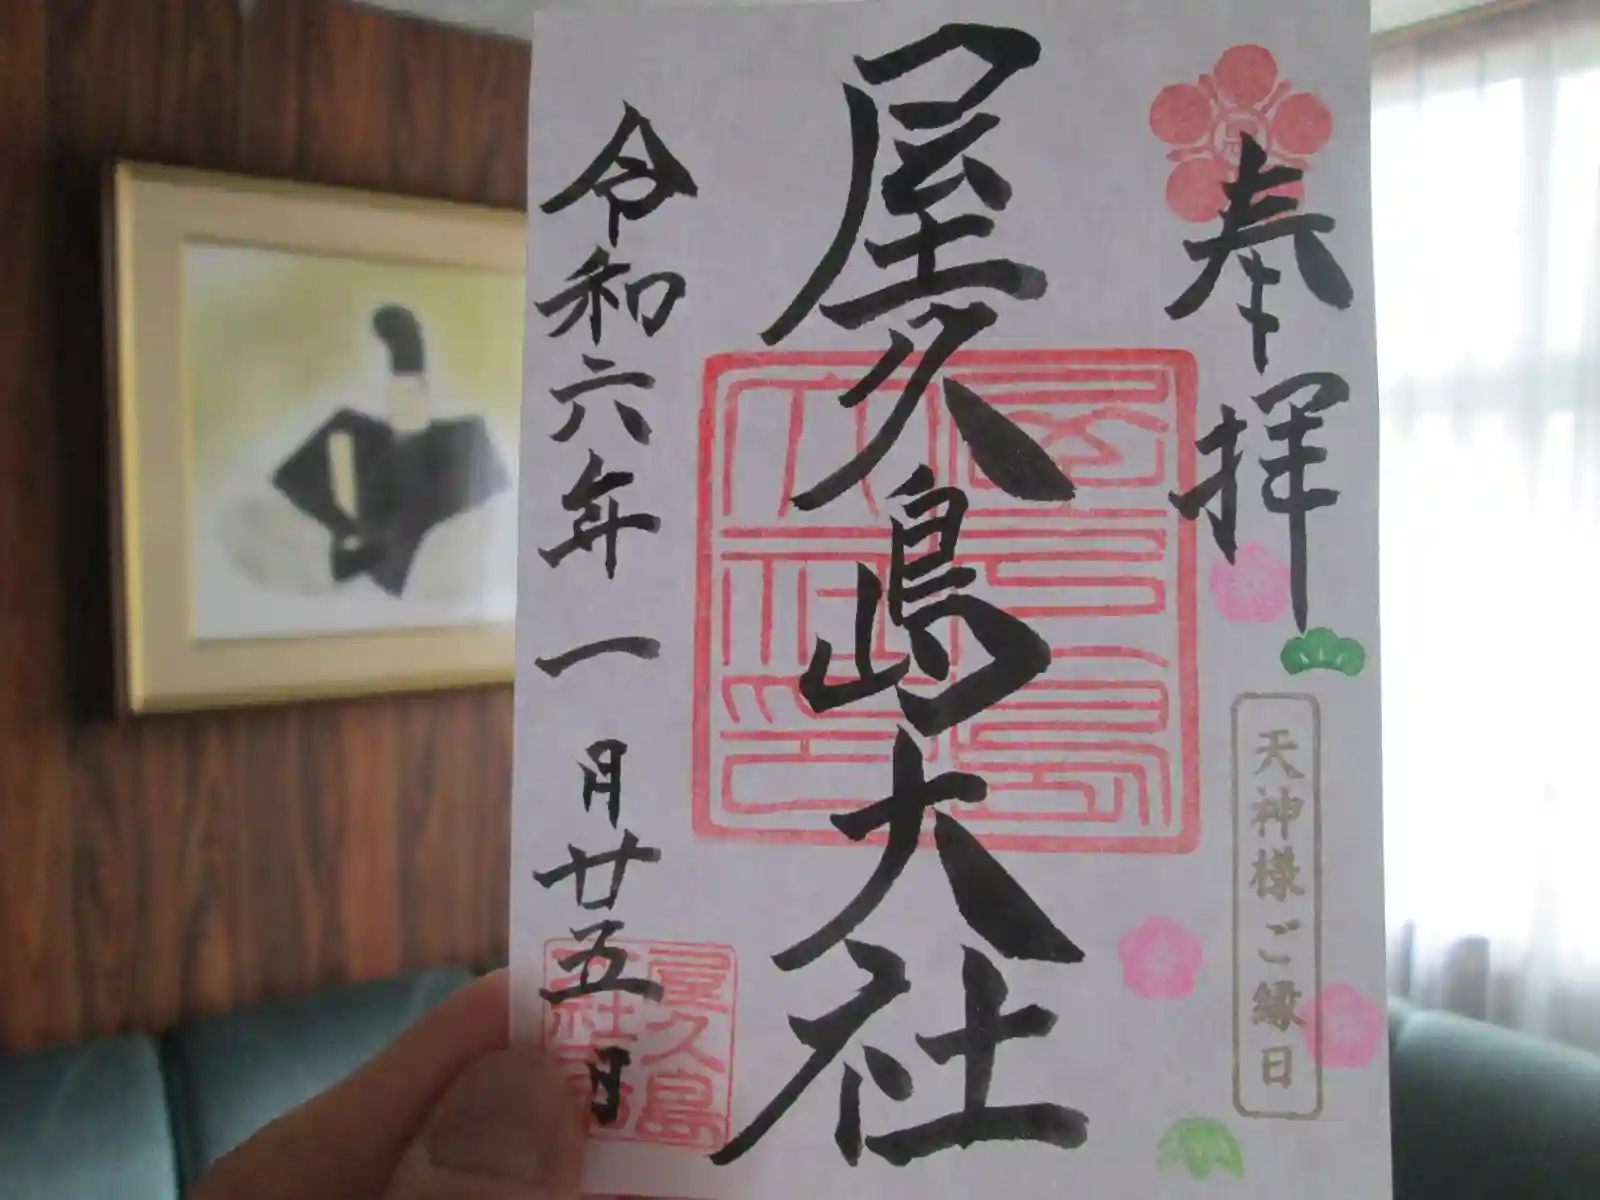 奉拝
天神様ご縁日
屋久島大社
令和六年一月廿五日
屋久島